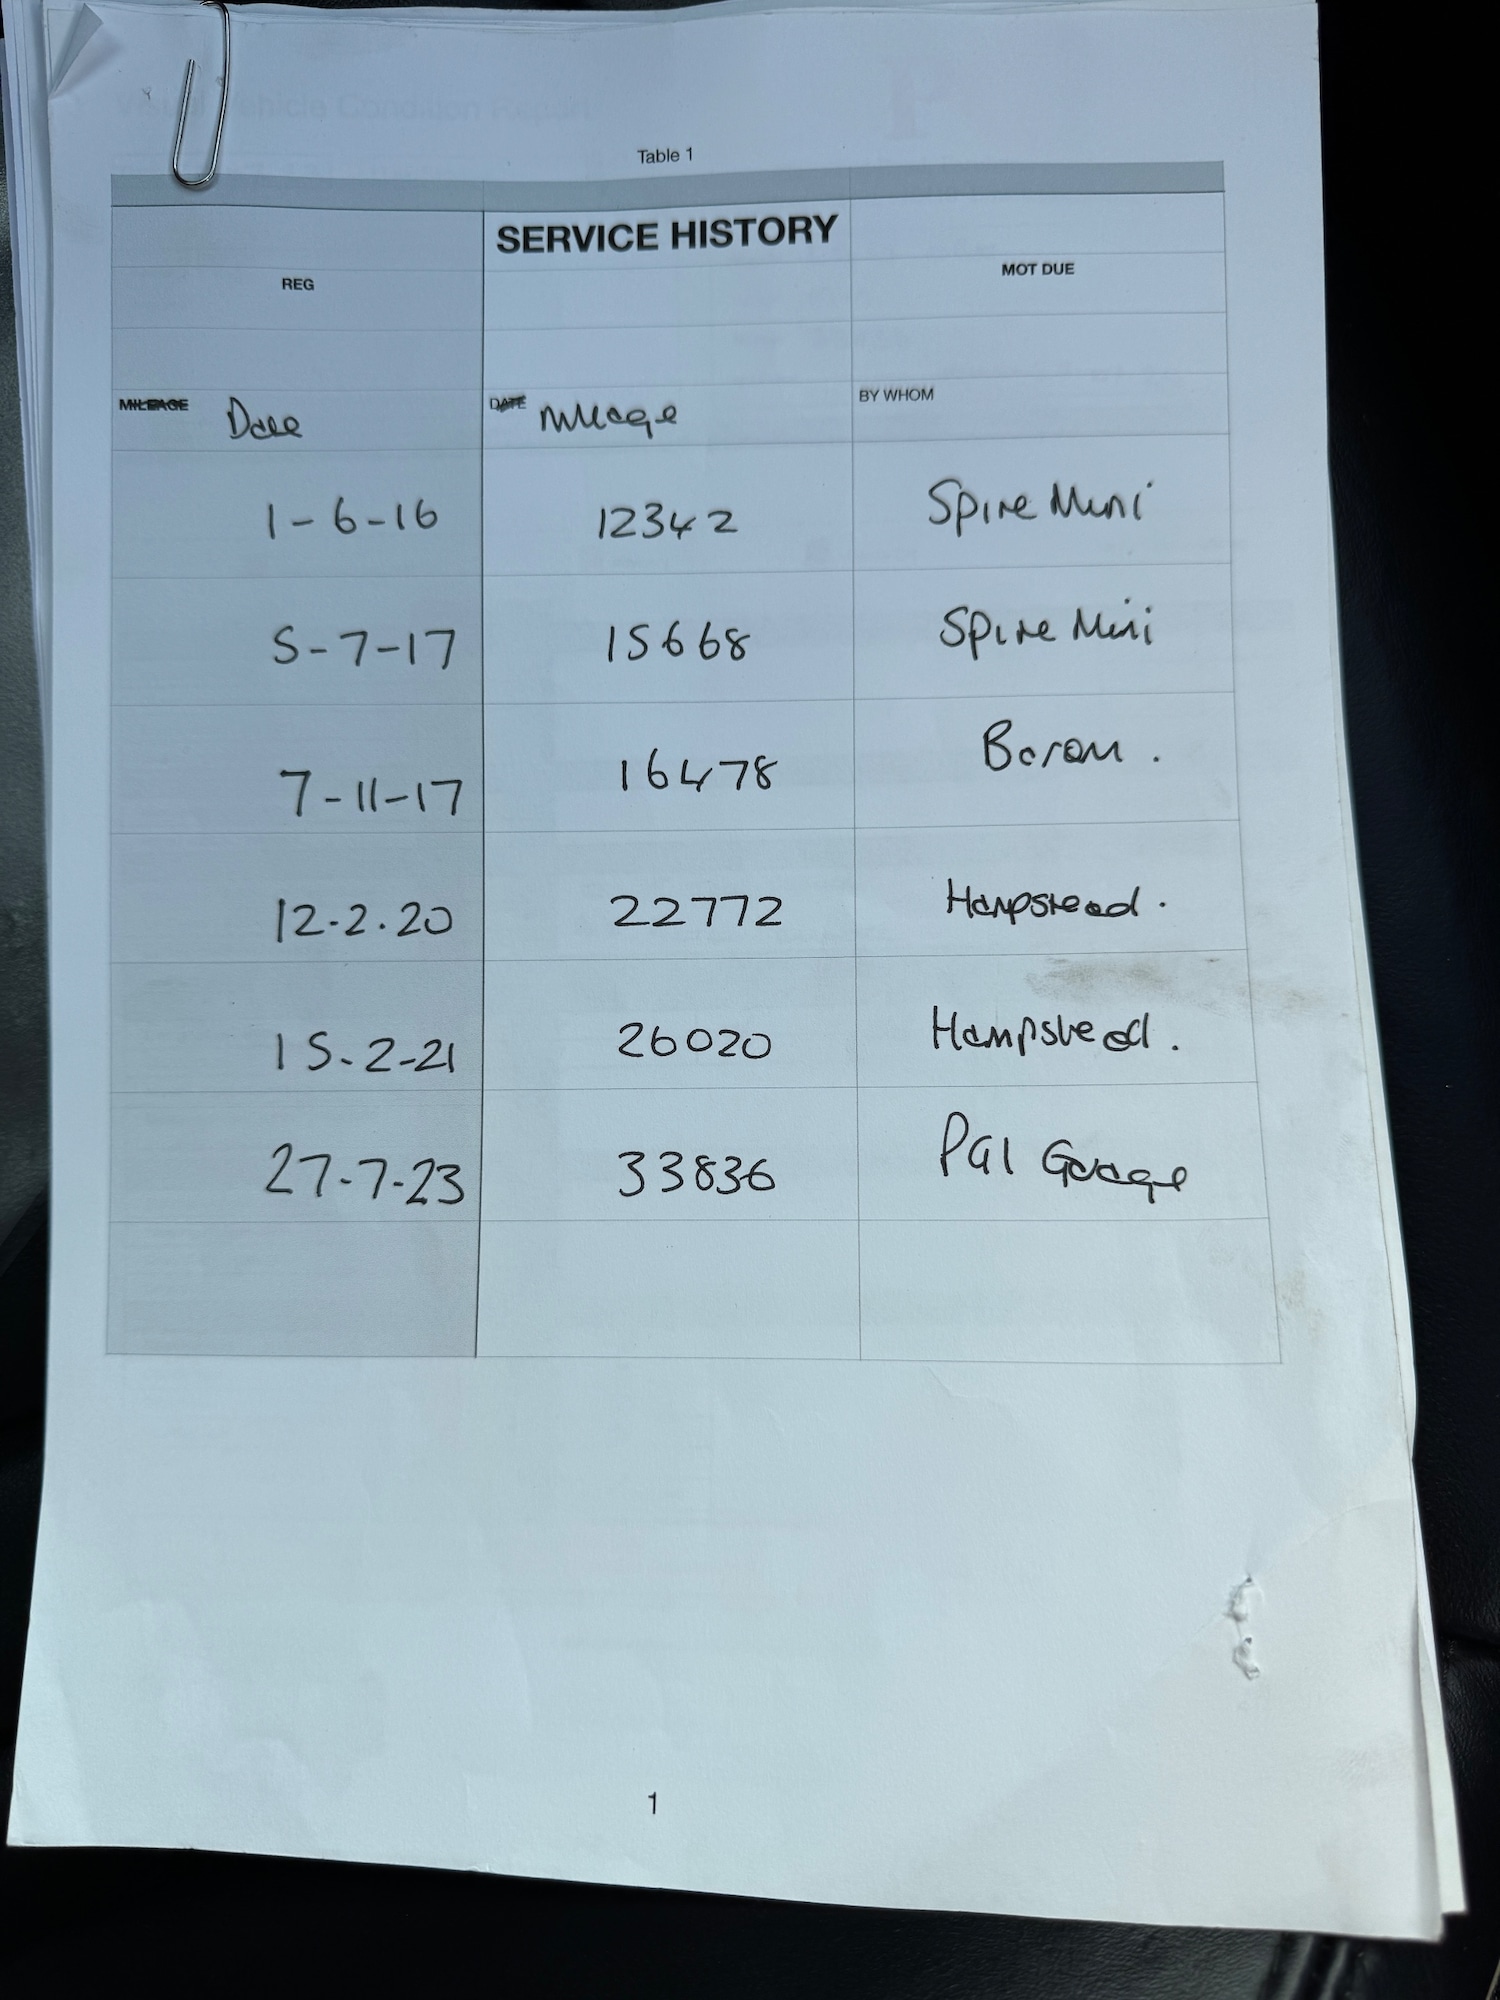 Visual Vehicle Condition Report
Table 1
SERVICE HISTORY
REG
MOT DUE
MILEAGE Date
DATE Mileage
BY WHOM
1-6-16 12342 Spire Mini
5-7-17 15668 Spire Mini
7-11-17 16478
12.2.20 22772 Hampstead.
15-2-21 26020 Hampstead.
27-7-23 33836 PGI Garage
1